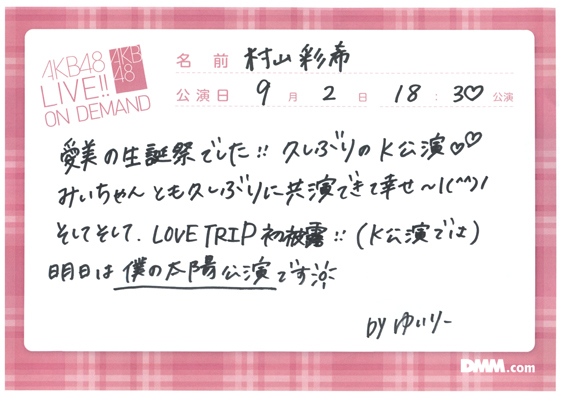 AKB48
LIVE!!
ON DEMAND
AKB
48
名前 村山彩希
公演日 9月2日 18:30♡公演
愛美の生誕祭でした!! 久しぶりのK公演♡♡
みぃちゃんとも久しぶりに共演できて幸せ〜\(^^)/
そしてそして、LOVE TRIP 初披露!! (K公演では)
明日は僕の太陽公演です☼
by ゆいりー
DMM.com